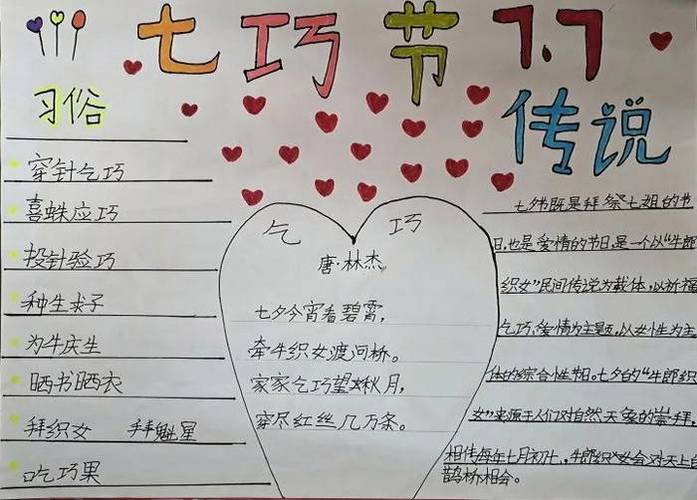 七巧节 7.7
习俗
穿针乞巧
喜蛛应巧
投针验巧
种生求子
为牛庆生
晒书晒衣
拜织女 拜魁星
吃巧果
乞巧
唐·林杰
七夕今宵看碧霄，
牵牛织女渡河桥。
家家乞巧望秋月，
穿尽红丝几万条。
传说
七夕节既是拜祭七姐的节
日，也是爱情的节日，是一个以“牛郎
织女”民间传说为载体，以祈福
乞巧、爱情为主题，以女性为主
体的综合性节日。七夕的“牛郎织
女”来源于人们对自然天象的崇拜，
相传每年七月初七，牛郎织女会于天上的
鹊桥相会。